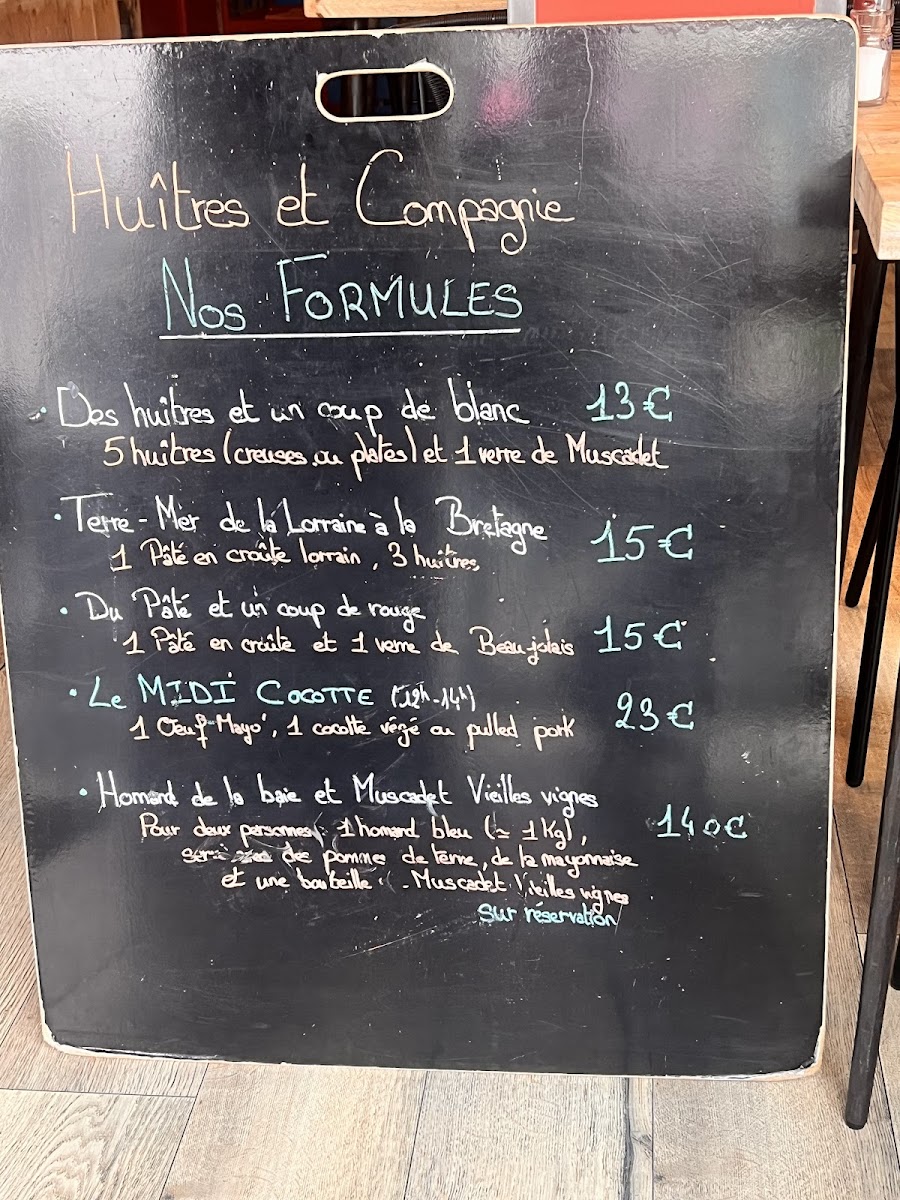 Huîtres et Compagnie
Nos FORMULES
• Des huîtres et un coup de blanc 13€
5 huîtres (creuses ou plates) et 1 verre de Muscadet
• Terre-Mer de la Lorraine à la Bretagne 15€
1 Pâté en croûte lorrain, 3 huîtres
• Du Pâté et un coup de rouge
1 Pâté en croûte et 1 verre de Beaujolais 15€
• Le MIDI COCOTTE (12h-14h)
1 Oeuf "Mayo", 1 cocotte végé ou pulled pork 23€
• Homard de la baie et Muscadet Vieilles vignes
Pour deux personnes, 1 homard bleu (≃ 1 Kg), 140€
des pomme de terre, de la mayonnaise
et une bouteille Muscadet Vieilles vignes
sur réservation